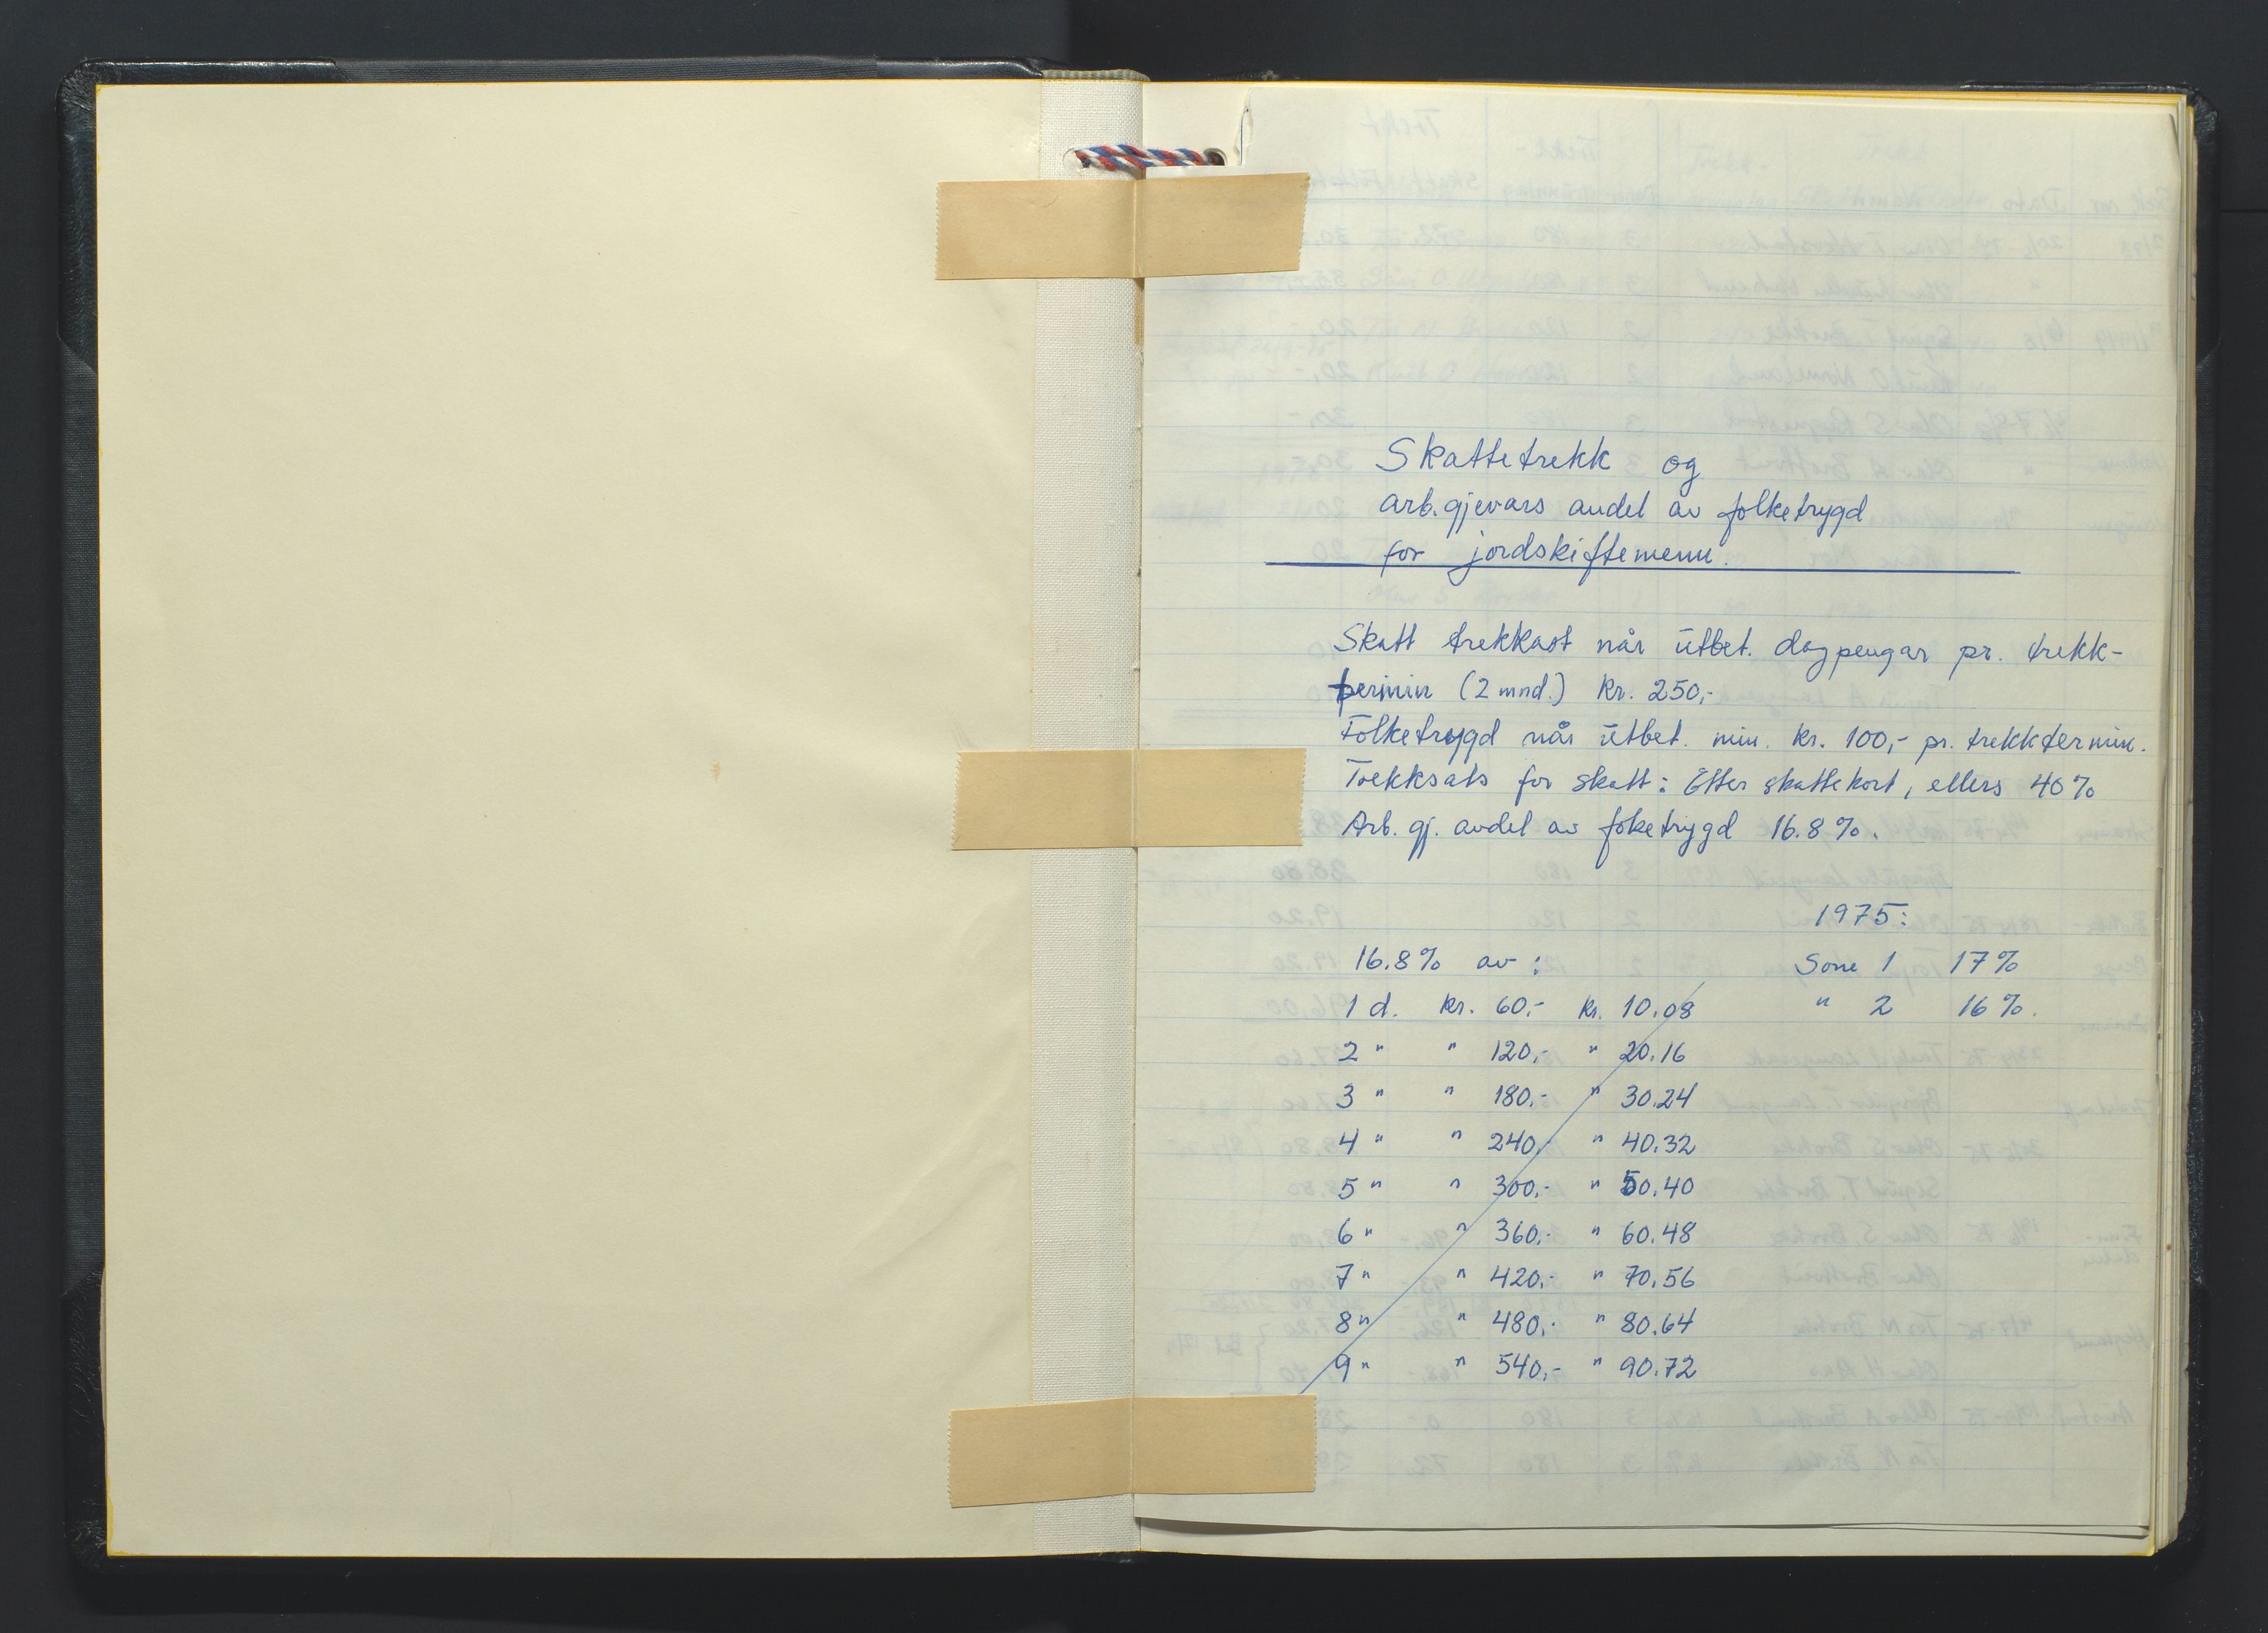 Skattetrekk og
arb.gjevars andel av folketrygd
for jordskiftemenn.
Skatt trekkast når utbet. dagpengar pr. trekk-
termin (2 mnd.) kr. 250,-
Folketrygd når utbet. min. kr. 100,- pr. trekktermin.
Trekksats for skatt: Etter skattekort, ellers 40%
Arb. gj. andel av foketrygd 16.8%.
1975:
16.8% av: Sone 1 17%
1 d. kr. 60,- kr. 10.08 " 2 16%.
2 " " 120,- " 20.16
3 " " 180,- " 30.24
4 " " 240,- " 40.32
5 " " 300,- " 50.40
6 " " 360,- " 60.48
7 " " 420,- " 70.56
8 " " 480,- " 80.64
9 " " 540,- " 90.72